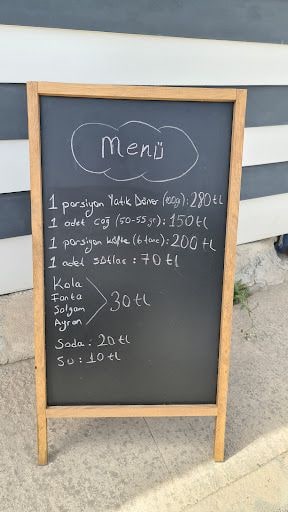 Menü
1 porsiyon Yatık Döner (100gr): 280 tL
1 adet cağ (50-55 gr): 150 tL
1 porsiyon köfte (6 tane): 200 tL
1 adet sütlaç: 70 tL
Kola
Fanta
Şalgam
Ayran
30 tL
Soda: 20 tL
Su: 10 tL